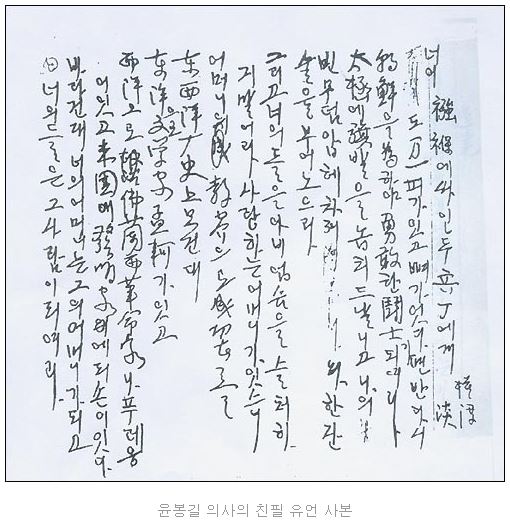 너이 襁褓에 싸인 두 兵丁에게
淡
도 万一 피가 잇고 뼈가 잇다면 반다시
朝鮮을 爲하야 勇敢한 鬪士되여라
太極에 旗발을 놉피 드날니고 나의
빈 무덤 압헤 차저 와 한잔
술을 부어 노으라
그리고 너의들은 아비 업슴을 슬퍼하
지 말어라 사랑하는 어머니가 잇스니
어머니의 敎育으로 成功者를
东西洋 史上 보건대
东洋으로 文学家 孟軻가 잇고
西洋으로 佛蘭西 革命家 나푸레옹
이 잇고 米国에 發明家 에디손이 잇다
바라건대 너의 어머니는 그의 어머니가 되고
너의들은 그 사람이 되여라
윤봉길 의사의 친필 유언 사본